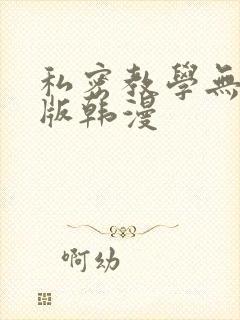 私密教學無
版韩漫
啊幼